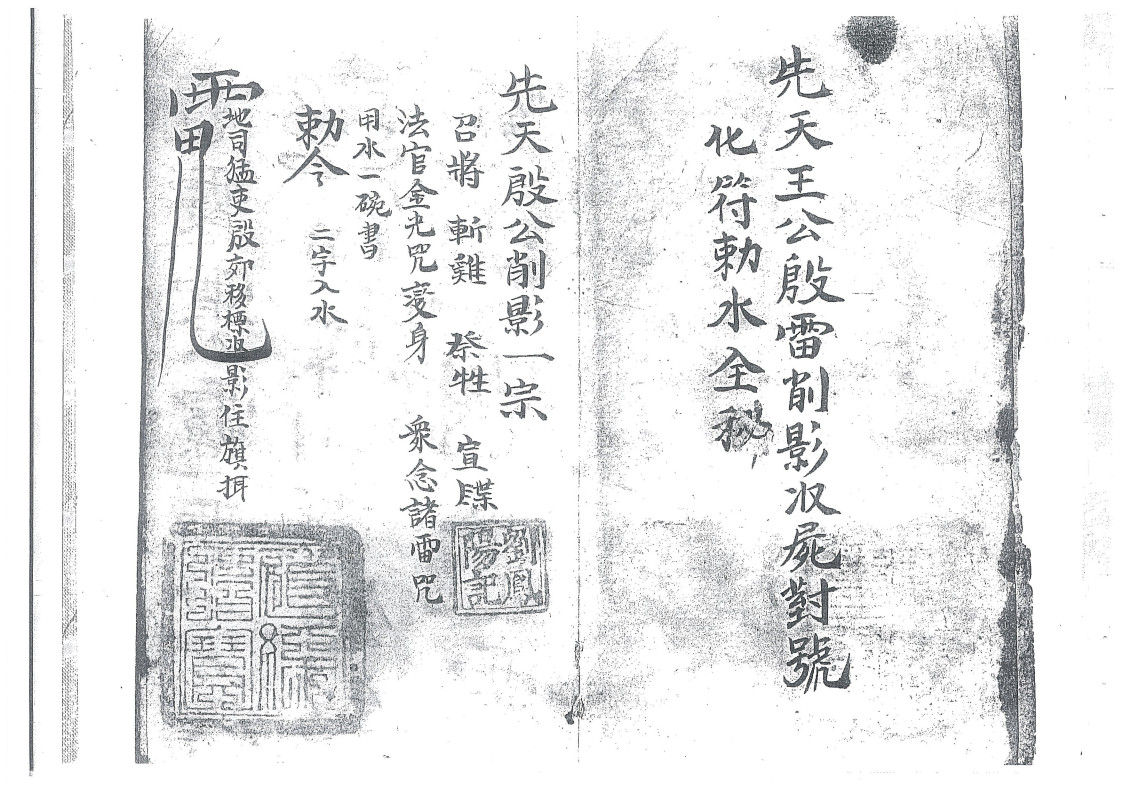 先天王公殷雷削影収屍對號
化符勅水全秘
先天殷公削影一宗
召將 斬雞 祭牲 宣牒
法官金光咒变身 衆念諸雷咒
用水一碗書
勅令 二字入水
地司猛吏殷郊移標収影住旗拜
劉鳳
陽記